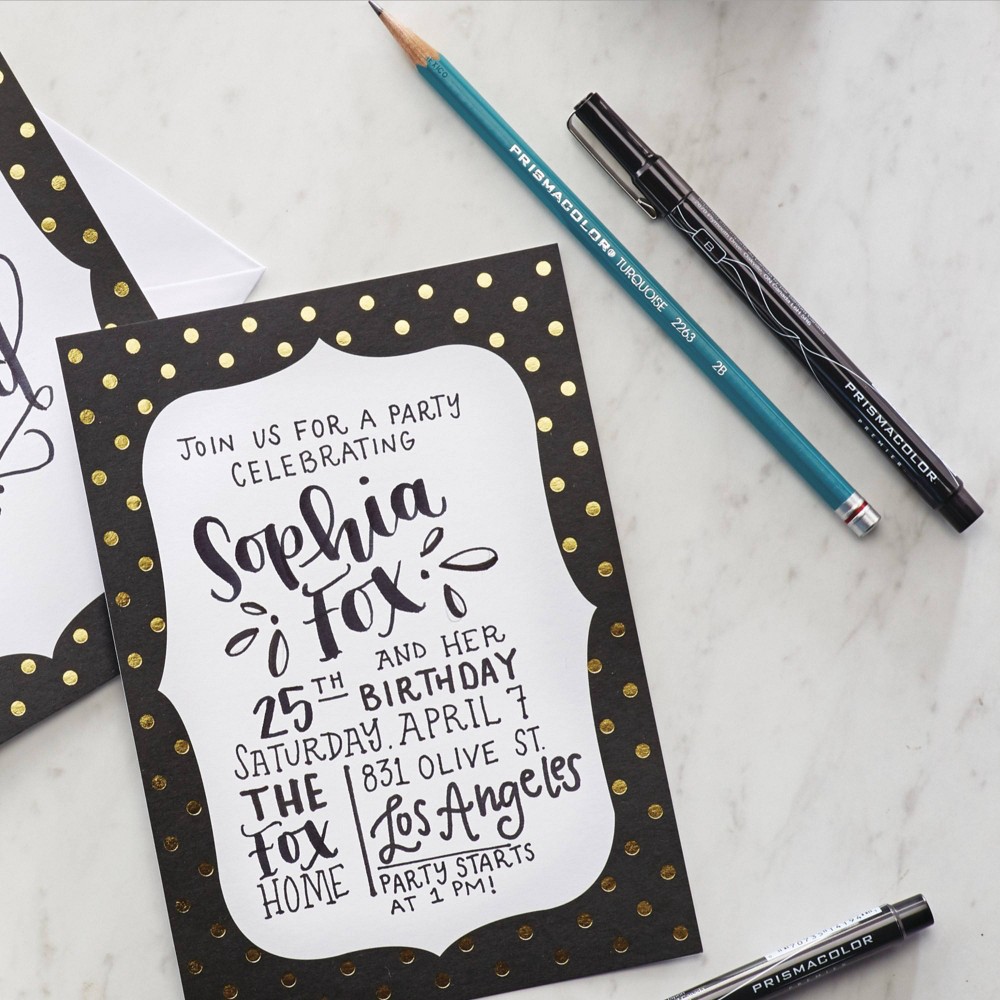 JOIN US FOR A PARTY
CELEBRATING
Sophia
Fox
AND HER
25TH BIRTHDAY
SATURDAY, APRIL 7
THE
Fox
HOME
831 OLIVE ST.
Los Angeles
PARTY STARTS
AT 1 PM!
PRISMACOLOR® TURQUOISE 2263 2B
B
PRISMACOLOR
PREMIER
PRISMACOLOR
PREMIER